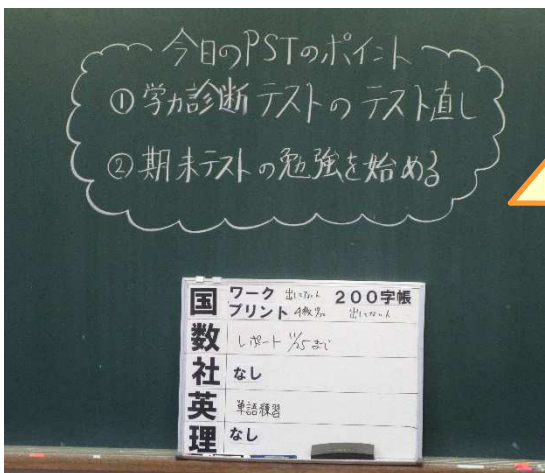 今日のPSTのポイント
①学力診断テストのテスト直し
②期末テストの勉強を始める
国 ワーク 出してない人 200字帳
プリント 4枚 出してない人
数 レポート 11/25まで
社 なし
英 単語練習
理 なし